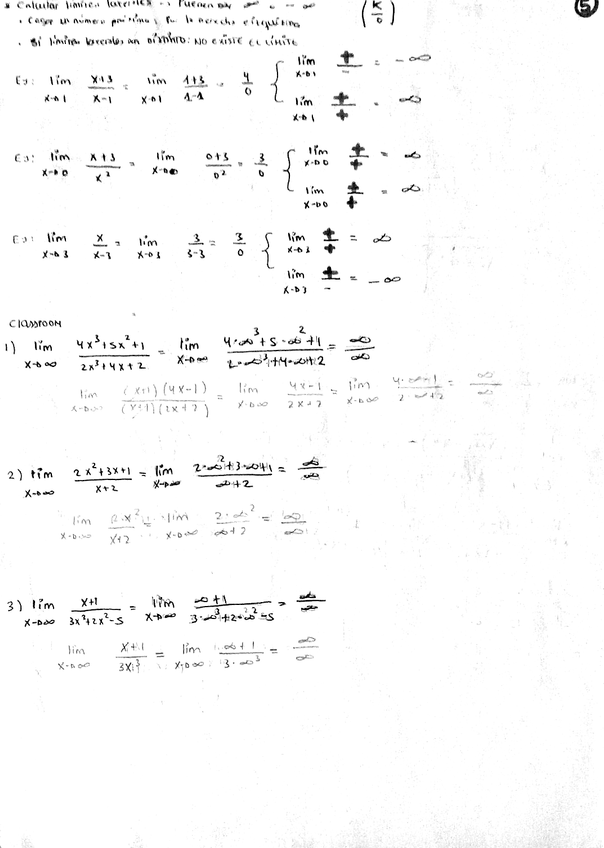 * Calcular límites laterales → Pueden dar ∞ o -∞ (K/0) 5
• Coger un número próximo por la derecha e izquierda
• Si límites laterales dan DISTINTO: NO EXISTE EL LÍMITE
Ej: lim x→1 (x+3)/(x-1) = lim x→1 (1+3)/(1-1) = 4/0 { lim x→1 +/- = -∞
lim x→1 +/+ = ∞
Ej: lim x→0 (x+3)/x² = lim x→0 (0+3)/0² = 3/0 { lim x→0 +/+ = ∞
lim x→0 +/+ = ∞
Ej: lim x→3 x/(x-3) = lim x→3 3/(3-3) = 3/0 { lim x→3 +/+ = ∞
lim x→3 +/- = -∞
Classroom
1) lim x→∞ (4x³+5x²+1)/(2x³+4x+2) = lim x→∞ (4·∞³+5·∞²+1)/(2·∞³+4·∞+2) = ∞/∞
lim x→∞ (x+1)(4x-1)/(x+1)(2x+2) = lim x→∞ (4x-1)/(2x+2) = lim x→∞ (4·∞-1)/(2·∞+2) = ∞/∞
2) lim x→∞ (2x²+3x+1)/(x+2) = lim x→∞ (2·∞²+3·∞+1)/(∞+2) = ∞/∞
lim x→∞ (2·x²)/(x+2) = lim x→∞ (2·∞²)/(∞+2) = ∞/∞
3) lim x→∞ (x+1)/(3x³+2x²-5) = lim x→∞ (∞+1)/(3·∞³+2·∞²-5) = ∞/∞
lim x→∞ (x+1)/(3x³) = lim x→∞ (∞+1)/(3·∞³) = ∞/∞